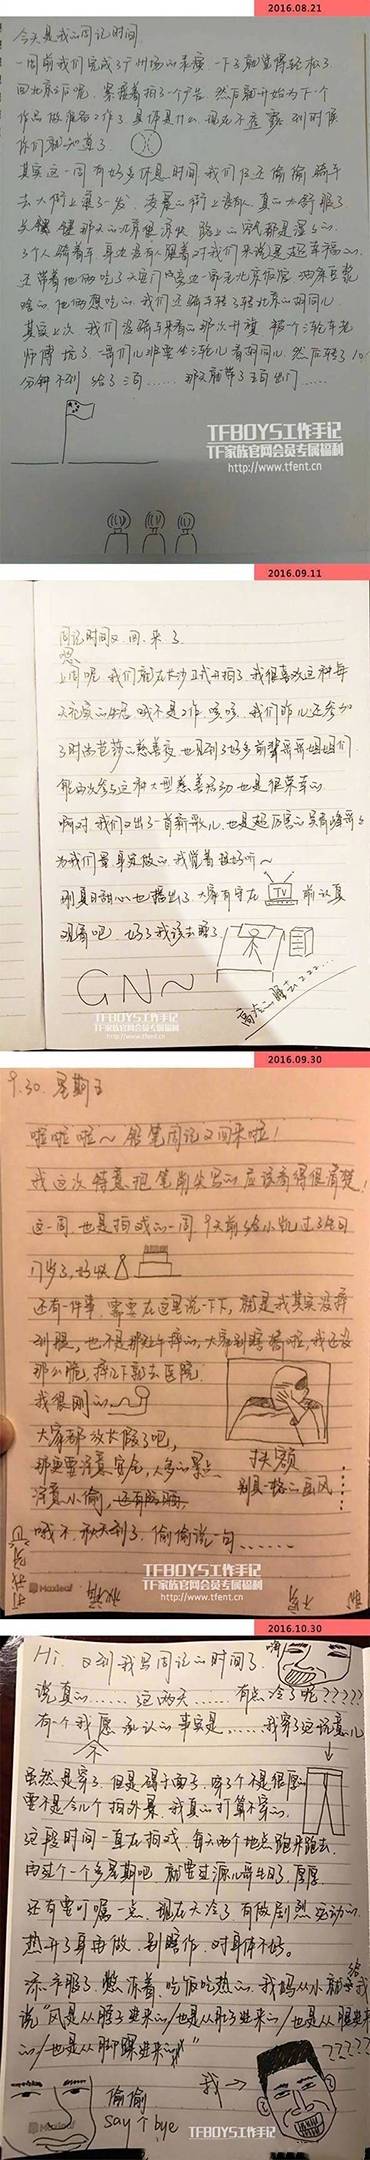 2016.08.21
今天是我的周记时间
一周前我们完成了广州场的录演 一下子就觉得轻松了
回北京了呢 紧接着拍了一个广告 然后就开始为下个
作品做准备工作了 具体是什么 现在不透露 到时候
你们就知道了
其实这一周有好多休息时间 我们仨还偷偷骑车
去大街上乘了一发 凌晨的街上没有人 真的太舒服了
关键那天的
3个人骑着车 身边没有人跟着对我们来说是超幸福的
还带着他俩吃了天安门 边一带老北京
啥的 他俩想吃的 我们还骑车转了转北京的胡同儿
其实上次 我们没骑车来着的那次开机 被一个三轮车老
师傅坑了 哥们儿非要坐三轮儿看胡同儿 然后转了10
分钟不到 给了三百...... 那天就带了 百出门......
TFBOYS工作手记
TF家族官网会员专属福利
http://www.tfent.cn
2016.09.11
周记时间又回来了
嗯
上周呢 我们就在长沙正式开拍了 我很喜欢这种每
天充实的生活 哦不是工作 咳咳 我们昨儿还参加
了时尚芭莎的慈善夜 也见到了好多前辈哥哥姐姐们
能再次参与这种大型慈善活动也是很荣幸的
啊对 我们又出了一首新歌儿 也是超厉害的吴青峰哥哥
为我们量身定做的 我觉着挺好听~
刚夏日甜心也播出了 大家有守在 TV 前认真
观看吧 好了我该去睡了
GN~
高冷的睡去zzz...
TFBOYS工作手记
TF家族官网会员专属福利
http://www.tfent.cn
2016.09.30
9.30. 星期五
啦啦啦~ 铅笔周记又回来啦!
我这次特意把笔削尖写的应该看得很清楚!
这一周 也是拍戏的一周 9天前给小凯过了生日
17岁了, 好快
还有一件事 需要在这里说一下下, 就是我其实没摔
到腿, 也不是那种摔的, 大家别瞎猜啦, 我还没
那么脆, 摔几下都去医院.
我很刚的
大家都放长假了吧,
那更要注意安全, 人多的景点
注意小偷,
哦不, 秋天到了, 偷偷说一句......
扶额
别具一格的画风
Maxleaf
TFBOYS工作手记
TF家族官网会员专属福利
http://www.tfent.cn
2016.10.30
Hi. 又到我写周记的时间了.
说真的...... 这两天...... 有点冷了呢?????
有一个我不愿承认的事实是...... 我穿了这玩意儿
虽然是穿了, 但是碍于面子, 穿了个不是很厚的
要不是今儿个拍外景, 我真的打算不穿的.
这段时间一直在拍戏, 每天两个地点跑来跑去.
再过一个多星期吧 就要过源儿哥生日了, 厚厚.
还有要叮嘱一点. 现在天冷了 有做剧烈运动的.
热开了身再做, 别瞎作, 对身体不好.
添衣服了, 憋冻着, 吃饭吃热的, 我妈从小就给我
说"风是从脖子进来的/也是从肚子进来的/也是从腿进来
的/也是从脚踝进来的"
?????
偷偷
say个bye
我→
Maxleaf
TFBOYS工作手记